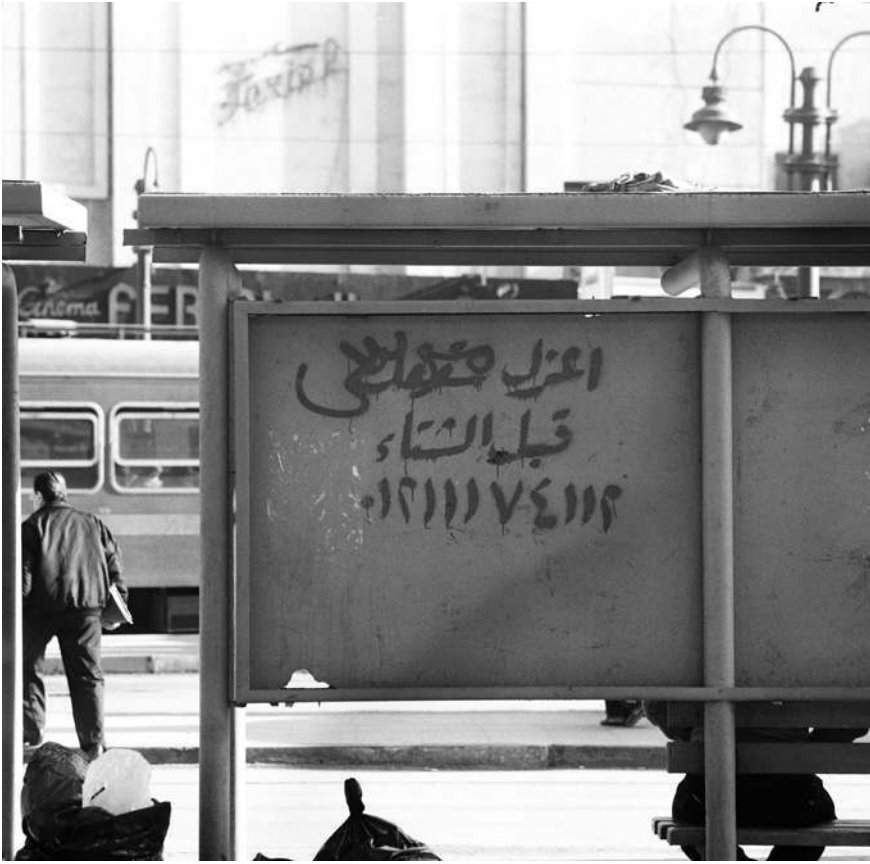 Ferial
Cinema
اعزل
قبل الشتاء
٠١٢١١١٧٤١١٢